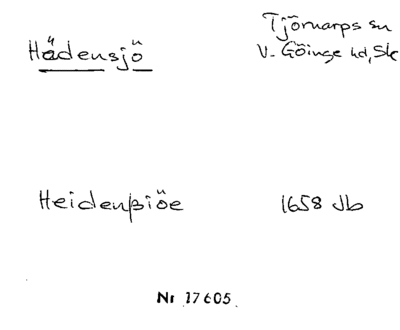 Tjörnarps sn
Hädensjö
V. Göinge hd, Sk
Heidenßiöe
1658 Jb
Nr 17605